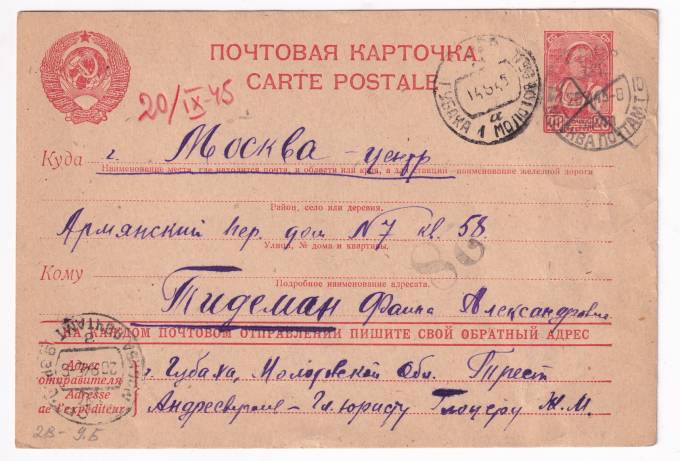 ПОЧТОВАЯ КАРТОЧКА
CARTE POSTALE
20/IX-45
Куда г. Москва - центр
Наименование места, где находится почта, и области или края, а для станции - наименование железной дороги
Район, село или деревня.
Армянский пер. дом №7 кв. 58.
Улица, № дома и квартиры.
Кому
Подробное наименование адресата.
Тидеман Фаина Александровне
НА КАЖДОМ ПОЧТОВОМ ОТПРАВЛЕНИИ ПИШИТЕ СВОЙ ОБРАТНЫЙ АДРЕС
Адрес отправителя г. Губаха, Молотовской Обл. Трест
Adresse de l'expéditeur Гл. юристу Ж. М.
2В - 9.Б